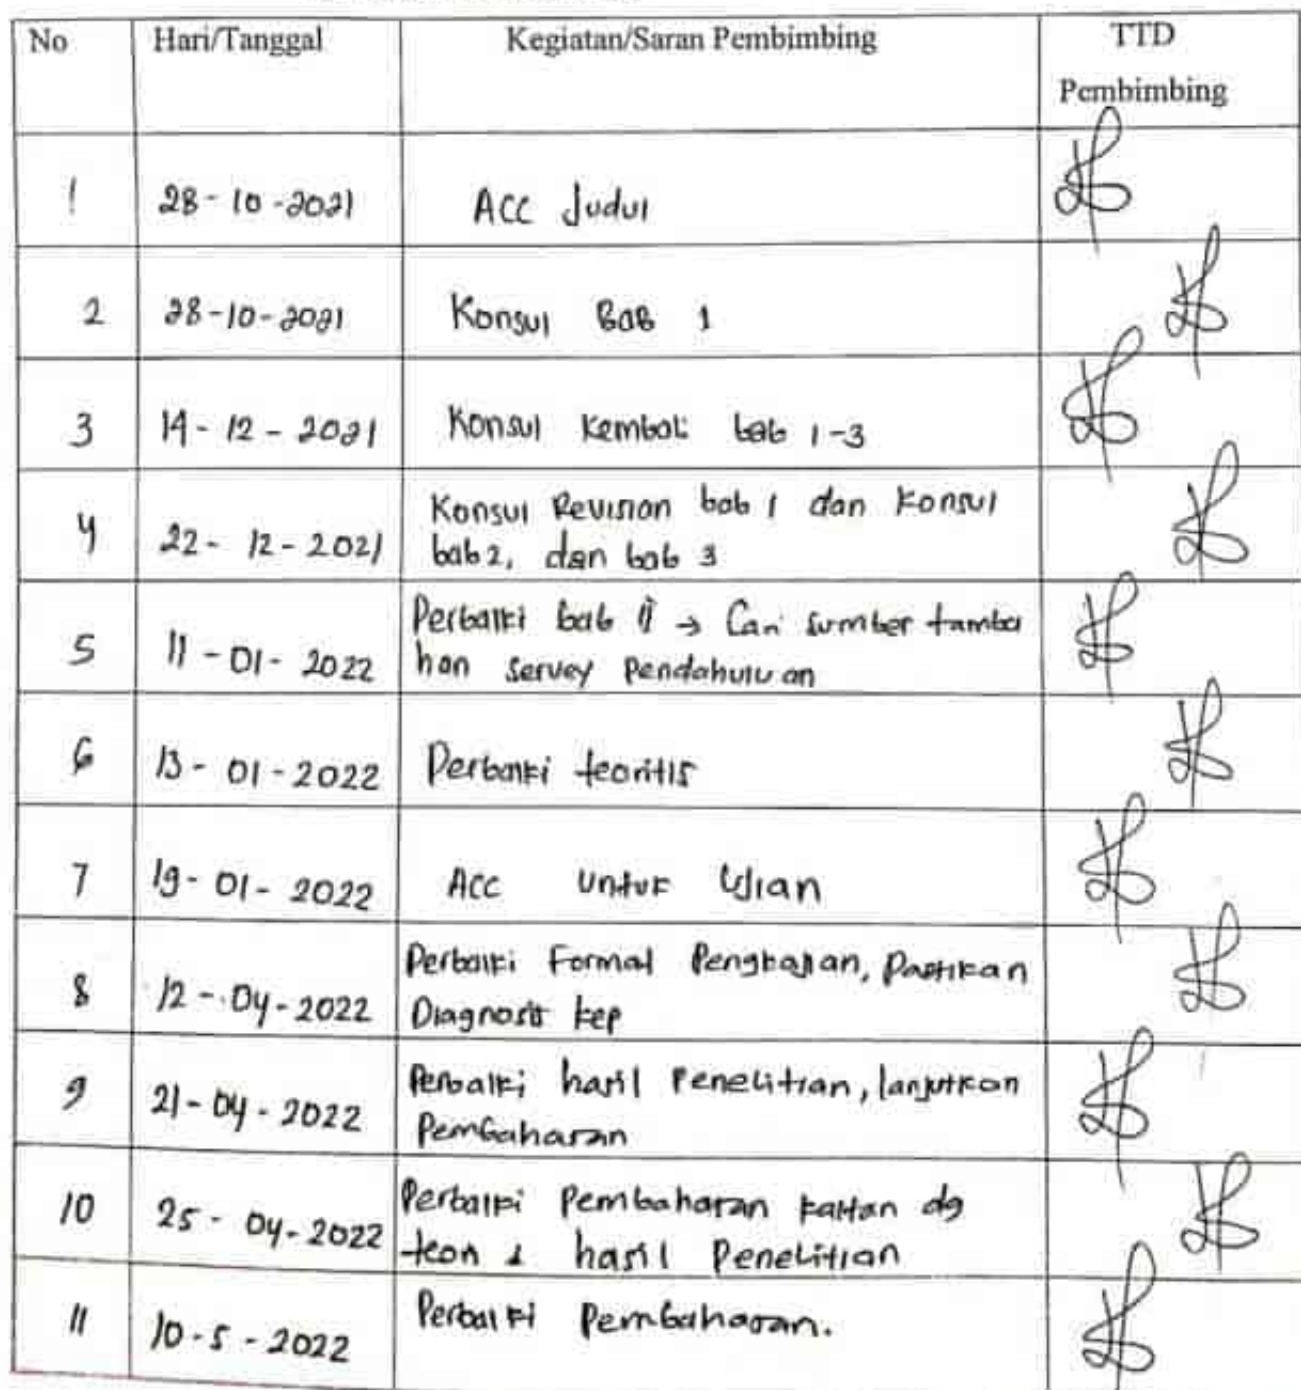 No Hari/Tanggal Kegiatan/Saran Pembimbing TTD
Pembimbing
1 28-10-2021 ACC Judul
2 28-10-2021 Konsul BAB 1
3 14-12-2021 Konsul Kembali bab 1-3
4 22-12-2021 Konsul Revisian bab 1 dan Konsul
bab 2, dan bab 3
5 11-01-2022 Perbaiki bab II → Cari sumber tamba
han servey Pendahuluan
6 13-01-2022 Perbaiki teoritis
7 19-01-2022 ACC Untuk Ujian
8 12-04-2022 Perbaiki Format Pengkajian, Pastikan
Diagnosis kep
9 21-04-2022 Perbaiki hasil Penelitian, lanjutkan
Pembahasan
10 25-04-2022 Perbaiki Pembahasan kaitan dg
teori & hasil Penelitian
11 10-5-2022 Perbaiki Pembahasan.